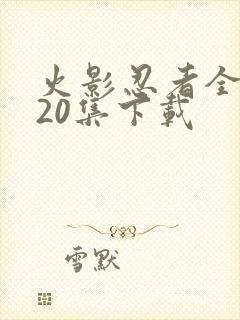 火影忍者全
20集下載
雪默